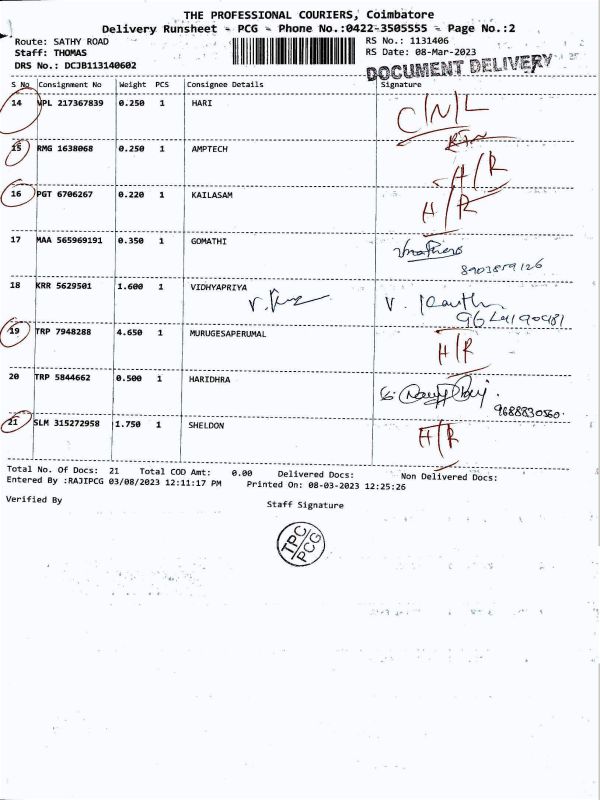 THE PROFESSIONAL COURIERS, Coimbatore
Delivery Runsheet - PCG - Phone No.:0422-3505555 - Page No.:2
Route: SATHY ROAD RS No.: 1131406
Staff: THOMAS RS Date: 08-Mar-2023
DRS No.: DCJB113140602 DOCUMENT DELIVERY
S No Consignment No Weight PCS Consignee Details Signature
14 VPL 217367839 0.250 1 HARI C/N/L
15 RMG 1638068 0.250 1 AMPTECH H/R
16 PGT 6706267 0.220 1 KAILASAM H/R
17 MAA 565969191 0.350 1 GOMATHI
18 KRR 5629501 1.600 1 VIDHYAPRIYA V.
19 TRP 7948288 4.650 1 MURUGESAPERUMAL H/R
20 TRP 5844662 0.500 1 HARIDHRA
9688830560.
21 SLM 315272958 1.750 1 SHELDON H/R
Total No. Of Docs: 21 Total COD Amt: 0.00 Delivered Docs: Non Delivered Docs:
Entered By :RAJIPCG 03/08/2023 12:11:17 PM Printed On: 08-03-2023 12:25:26
Verified By Staff Signature
TPC
PCG